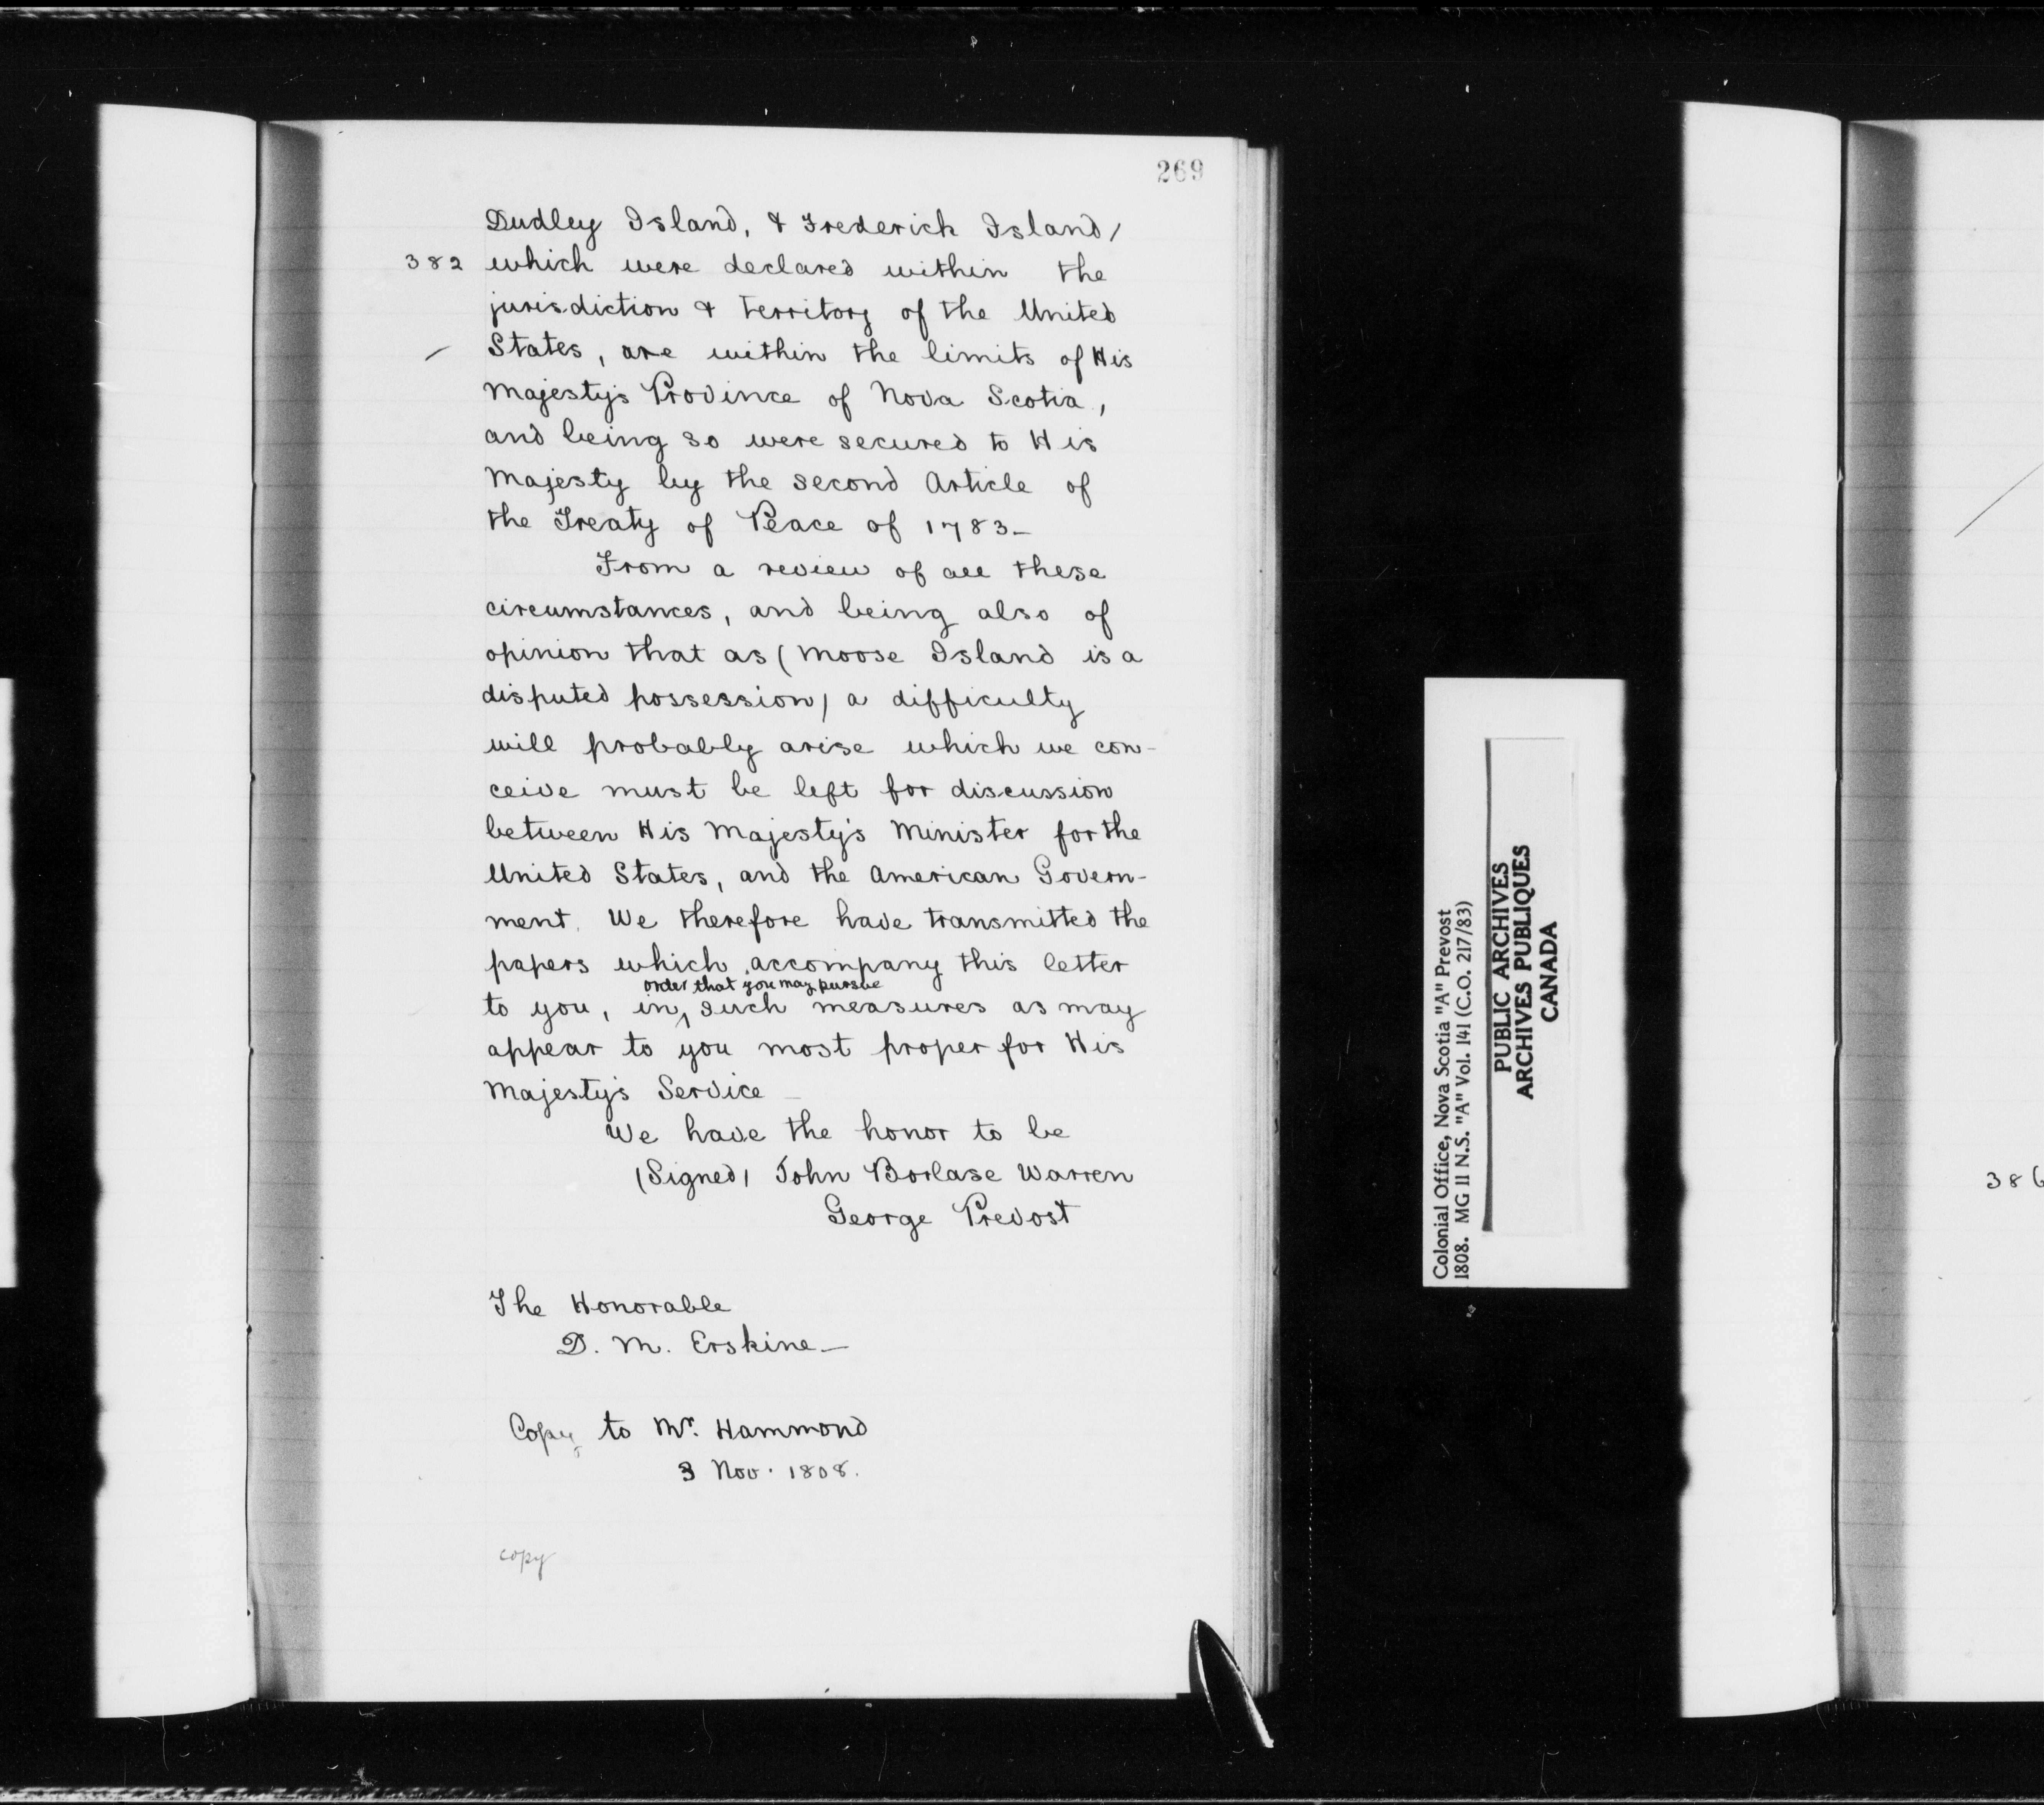 269
Dudley Island, & Frederich Island/
382 which were declared within the
jurisdiction & territory of the United
States, are within the limits of His
Majesty's Province of Nova Scotia,
and being so were secured to His
Majesty by the second Article of
the Treaty of Peace of 1783_
From a review of all these
circumstances, and being also of
opinion that as (Moose Island is a
disputed possession) a difficulty
will probably arise which we con-
ceive must be left for discussion
between His Majesty's Minister for the
United States, and the American Govern-
ment. We therefore have transmitted the
papers which accompany this letter
order that you may pursue
to you, in ^ such measures as may
appear to you most proper for His
Majesty's Service _
We have the honor to be
(Signed) John Borlase Warren
George Prevost
The Honorable
D. M. Erskine_
Copy to Mr. Hammond
3 Nov. 1808.
copy
Colonial Office, Nova Scotia "A" Prevost
1808. MG 11 N.S. "A" Vol. 141 (C.O. 217/83)
PUBLIC ARCHIVES
ARCHIVES PUBLIQUES
CANADA
386